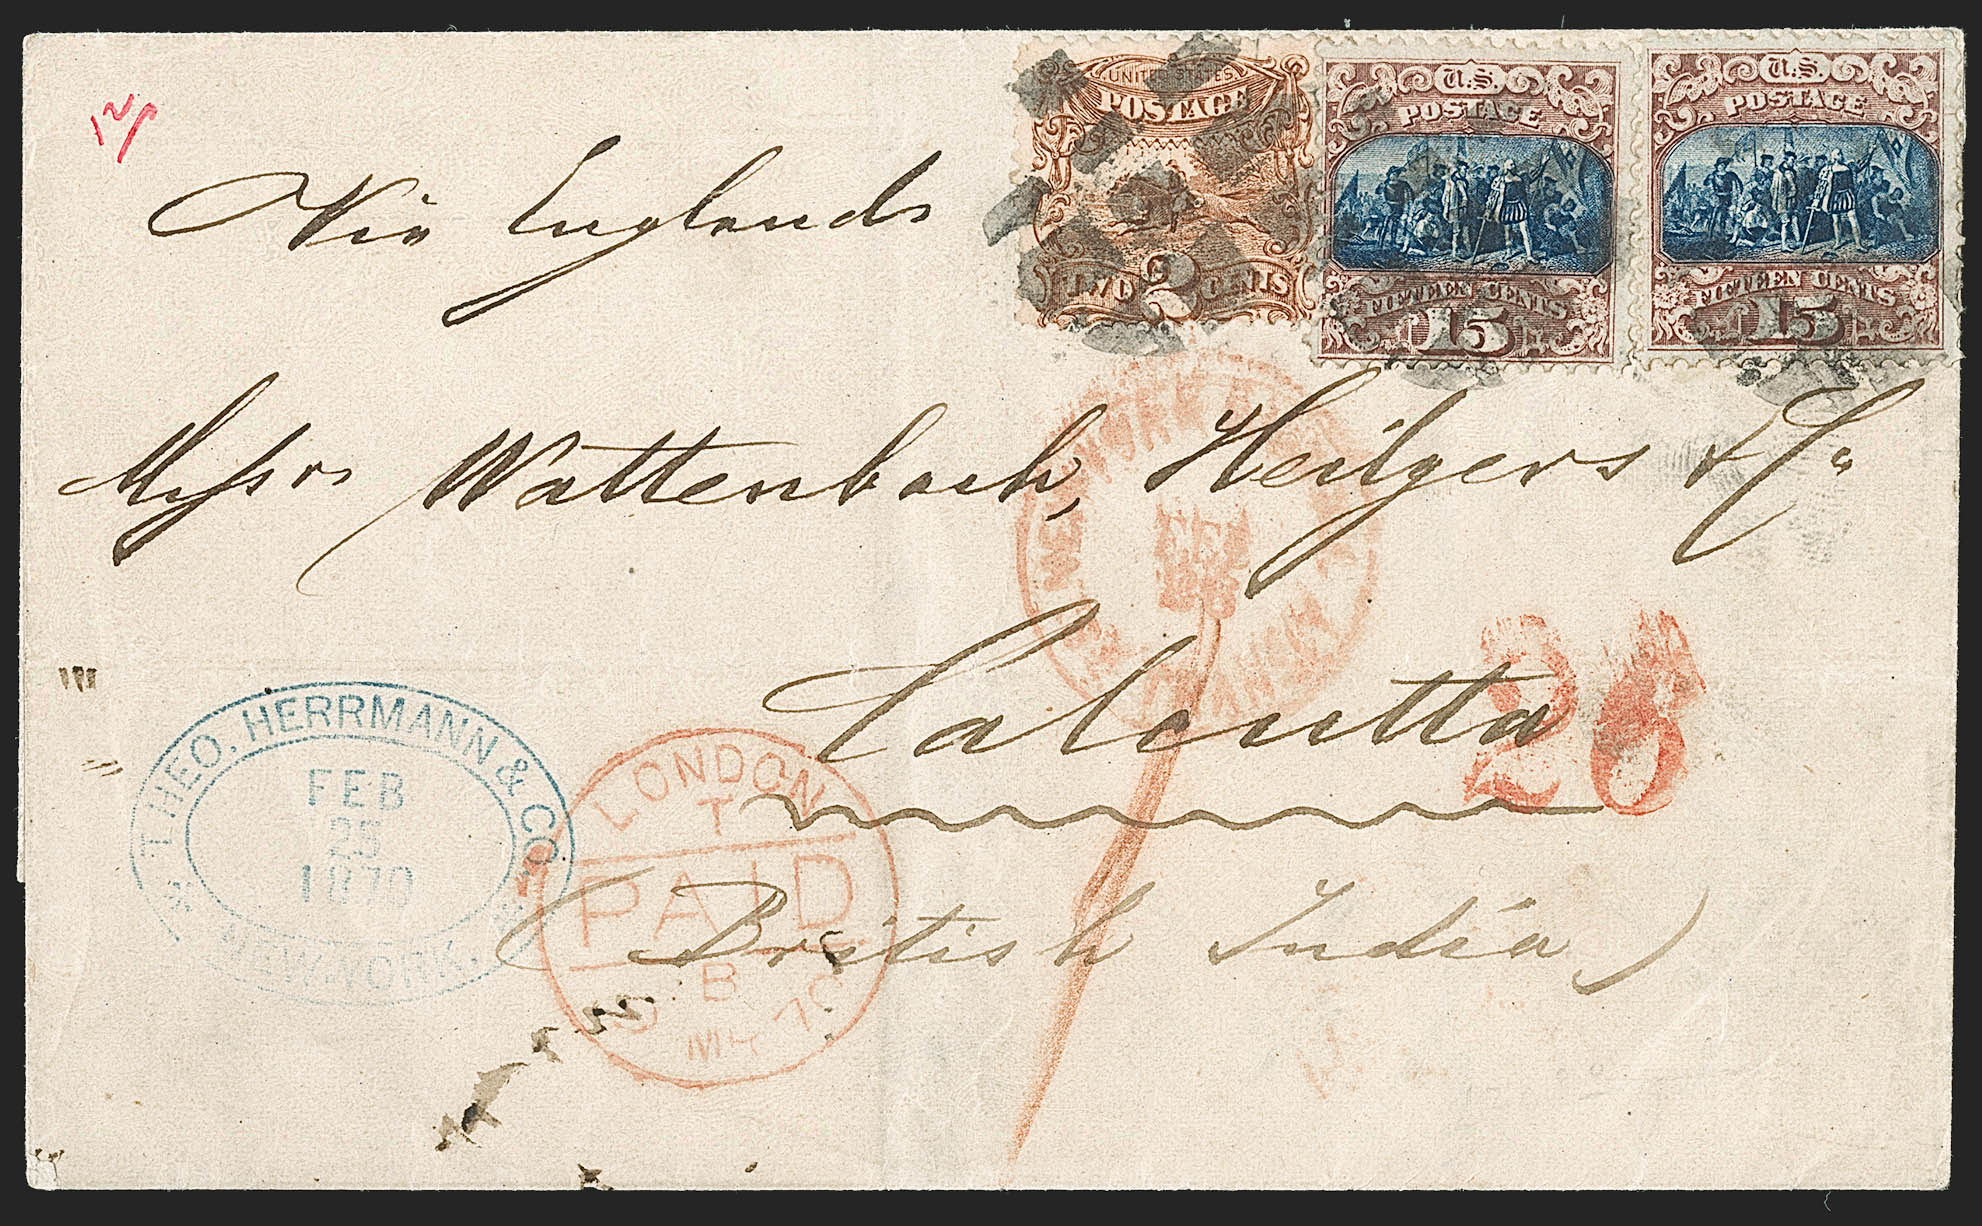 12/
Via England
UNITED STATES
POSTAGE
TWO 2 CENTS
U.S.
POSTAGE
FIFTEEN CENTS
15
U.S.
POSTAGE
FIFTEEN CENTS
15
Messrs Wattenbach, Heilgers & Co
NEW YORK
FEB
26
Calcutta
28
(British India)
THEO. HERRMANN & CO.
FEB
25
1870
NEW-YORK.
LONDON
T
PAID
B
MR 70